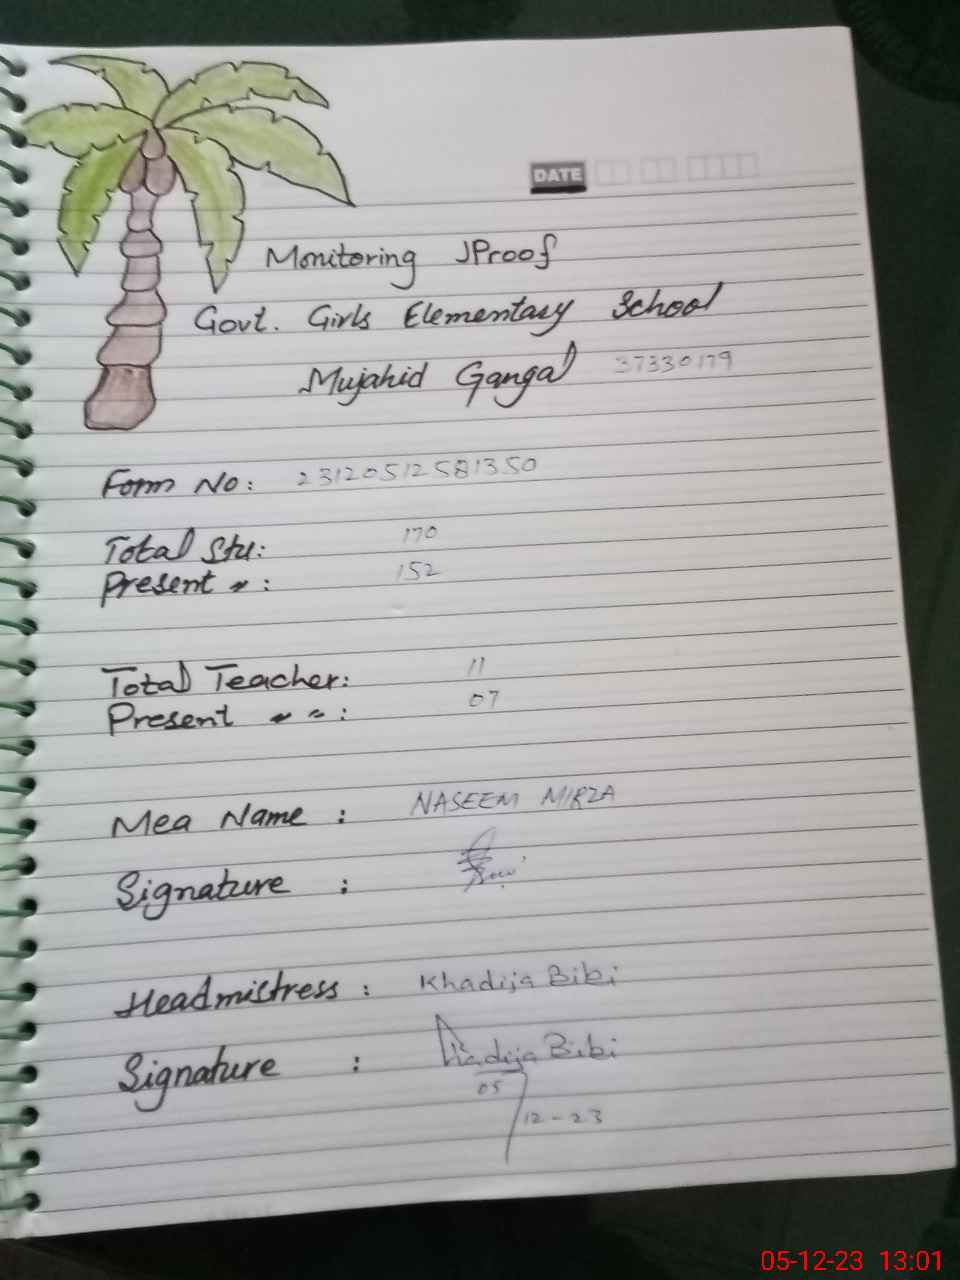 DATE
Monitoring Proof
Govt. Girls Elementary School
Mujahid Gangal 37330179
Form No: 23120512581350
Total Stu: 170
Present ": 152
Total Teacher: 11
Present " ": 07
Mea Name : NASEEM MIRZA
Signature :
Headmistress : Khadija Bibi
Signature : Khadija Bibi
05
12-23
05-12-23 13:01